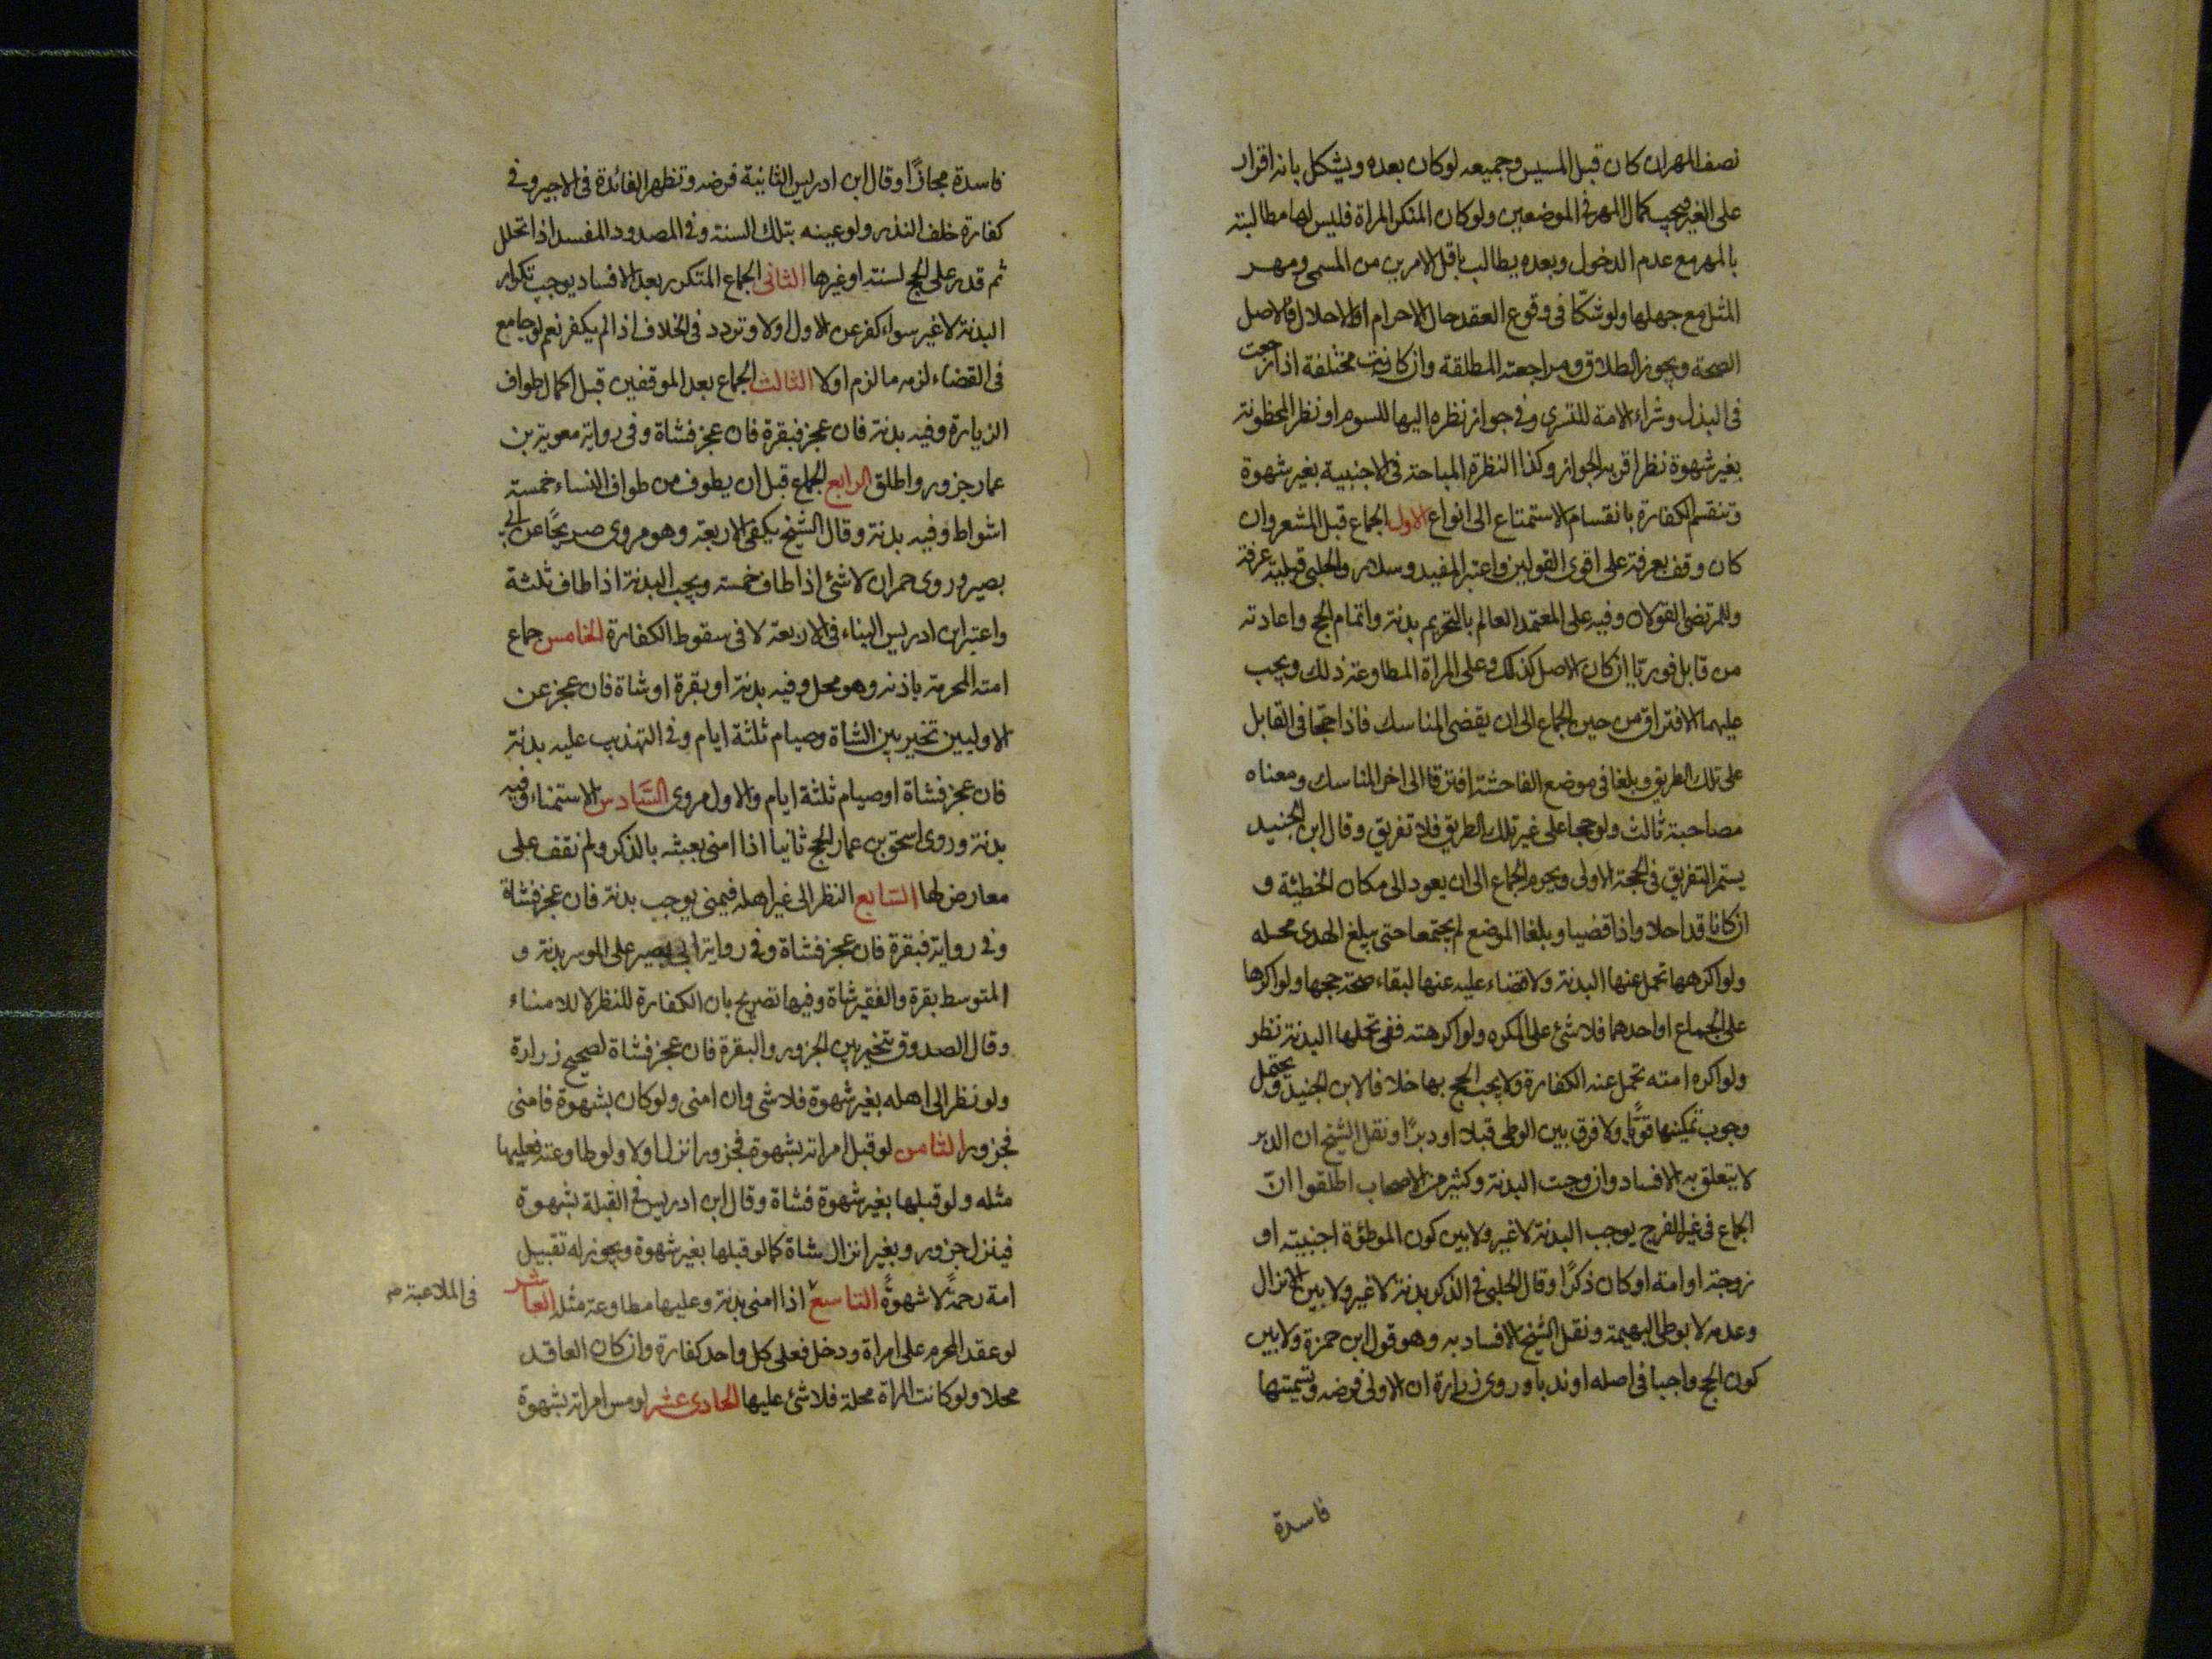 نصف المهر ان كان قبل المسيس وجميعه لو كان بعده ويشكل بانه اقرار
على الغير فيجب كمال المهر في الموضعين ولو كان المنكر المراة فليس لها مطالبته
بالمهر مع عدم الدخول وبعده يطالب باقل الامرين من المسمى ومهر
المثل مع جهلها ولو شكا في وقوع العقد حال الاحرام او الاحلال فالاصل
الصحة ويجوز الطلاق ومراجعته المطلقة وان كانت مختلفة اذا رجعت
في البذل وشراء الامة للتسري وفي جواز نظره اليها للسوم او نظر المخطوبة
بغير شهوة نظر اقربه الجواز وكذا النظرة المباحة في الاجنبية بغير شهوة
وتنقسم الكفارة بانقسام الاستمتاع الى انواع الاول الجماع قبل المشعر وان
كان وقف بعرفة على اقوى القولين واعتبر المفيد وسلار والحلبي قبلية عرفة
وللمرتضى القولان وفيه على المعتمد العالم بالتحريم بدنة واتمام الحج واعادته
من قابل فوريا ان كان الاصل كذلك وعلى المراة المطاوعة ذلك ويجب
عليهما الافتراق من حين الجماع الى ان يقضى المناسك فاذا حجا في القابل
على تلك الطريق وبلغا في موضع الفاحشة افترقا الى اخر المناسك ومعناه
مصاحبة ثالث ولو حجا على غير تلك الطريق فلا تفريق وقال ابن الجنيد
يستمر التفريق في الحجة الاولى ويحرم الجماع الى ان يعود الى مكان الخطيئة و
ان كانا قد احلا واذا قضيا وبلغا الموضع لم يجتمعا حتى يبلغ الهدي محله
ولو اكرهها تحمل عنها البدنة ولا قضاء عليه عنها لبقاء صحة حجها ولو اكرها
على الجماع او احدهما فلا شئ على المكره ولو اكرهته ففي تحملها البدنة نظر
ولو اكره امته تحمل عنه الكفارة ولا يجب الحج بها خلافا لابن الجنيد ويحتمل
وجوب تمكينها قويا ولا فرق بين الوطى قبلا او دبرا ونقل الشيخ ان الدبر
لا يتعلق به الافساد وان وجبت البدنة وكثير من الاصحاب اطلقوا ان
الجماع في غير الفرج يوجب البدنة لا غير ولا بين كون الموطؤة اجنبية او
زوجة او امة او كان ذكرا وقال الحلبي في الذكر بدنة لا غير ولا بين الانزال
وعدمه لا بوطى البهيمة ونقل الشيخ الافساد به وهو قول ابن حمزة ولا بين
كون الحج واجبا في اصله او ندبا وروى زرارة ان الاولى فرضه وتسميتها
فاسدة
فاسدة مجازا وقال ابن ادريس الثانية فرضه وتظهر الفائدة في الاجير وفي
كفارة خلف النذر ولو عينه بتلك السنة وفي المصدود المفسد اذا تحلل
ثم قدر على الحج لسنته او غيرها الثاني الجماع المتكرر بعد الافساد يوجب تكرار
البدنة لا غير سواء كفر عن الاول اولا وتردد في الخلاف اذا لم يكفر نعم لو جامع
في القضاء لزمه ما لزم اولا الثالث الجماع بعد الموقفين قبل اكمال طواف
الزيارة وفيه بدنة فان عجز فبقرة فان عجز فشاة وفي رواية معوية بن
عمار جزور واطلق الرابع الجماع قبل ان يطوف من طواف النساء خمسة
اشواط وفيه بدنة وقال الشيخ يكفى الاربعة وهو مروى صريحا عن ابي
بصير وروى حمران لا شئ اذا طاف خمسة ويجب البدنة اذا طاف ثلثة
واعتبر ابن ادريس البناء في الاربعة لا في سقوط الكفارة الخامس جماع
امته المحرمة باذنه وهو محل وفيه بدنة او بقرة او شاة فان عجز عن
الاوليين تخير بين الشاة وصيام ثلثة ايام وفي التهذيب عليه بدنة
فان عجز فشاة او صيام ثلثة ايام والاول مروى السادس الاستمناء وفيه
بدنة وروى اسحق بن عمار الحج ثانيا اذا امنى بعبثه بالذكر ولم نقف على
معارض لها السابع النظر الى غير اهله فيمنى يوجب بدنة فان عجز فشاة
وفي رواية فبقرة فان عجز فشاة وفي رواية ابي بصير على الموسر بدنة و
المتوسط بقرة والفقير شاة وفيها تصريح بان الكفارة للنظر لا للامناء
وقال الصدوق يتخير بين الجزور والبقرة فان عجز فشاة لصحيح زرارة
ولو نظر الى اهله بغير شهوة فلا شى وان امنى ولو كان بشهوة فامنى
فجزور الثامن لو قبل امراته بشهوة فجزور انزل اولا ولو طاوعته فعليها
مثله ولو قبلها بغير شهوة فشاة وقال ابن ادريس في القبلة بشهوة
فينزل جزور وبغير انزال شاة كما لو قبلها بغير شهوة ويجوز له تقبيل
امه رحمة لا شهوة التاسع اذا امنى بدنة وعليها مطاوعة مثله العاشر
في الملاعبة صح
لو عقد المحرم على امراة ودخل فعلى كل واحد كفارة وان كان العاقد
محلا ولو كانت المراة محلة فلا شئ عليها الحادى عشر لو مس امراته بشهوة